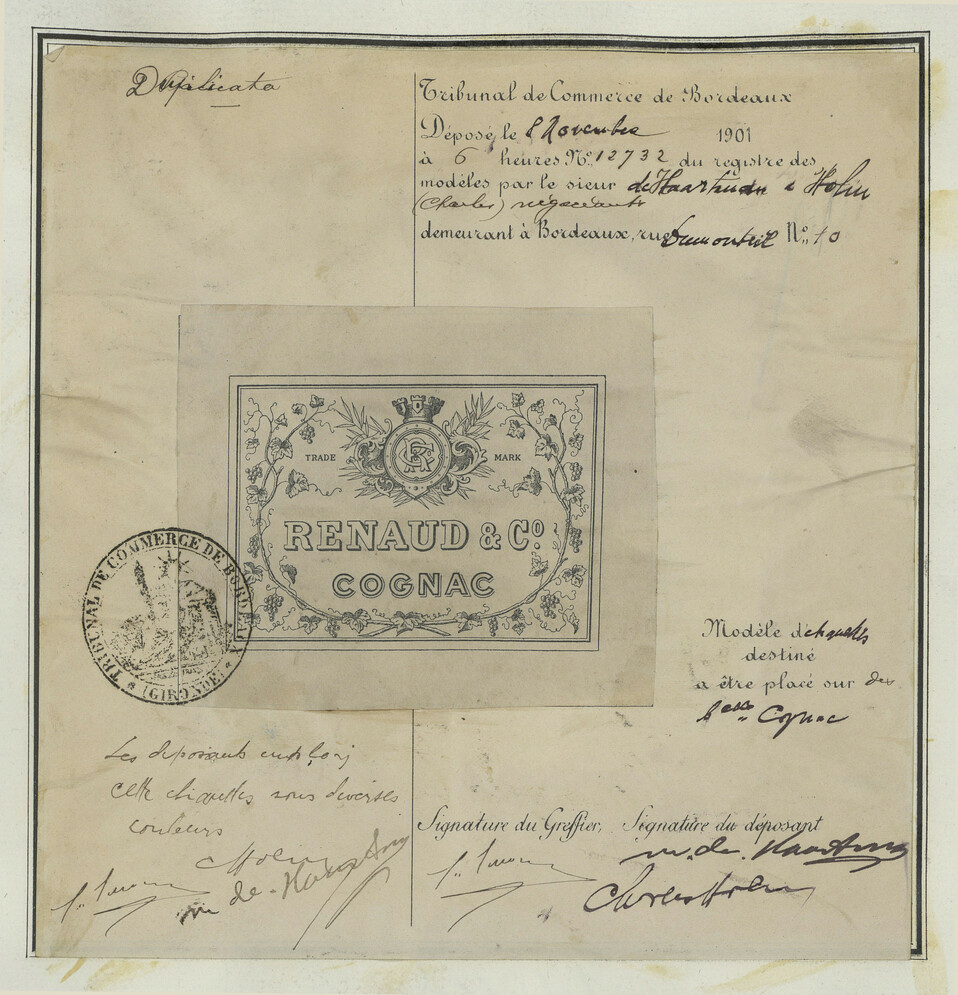 Duplicata
Tribunal de Commerce de Bordeaux
Déposé, le 8 Novembre 1901
à 6 heures No. 12732 du registre des
modèles par le sieur de Haartman & Holm
(Charles) négociants
demeurant à Bordeaux, rue Dumonteil No. 10
TRADE MARK
RENAUD & Co.
COGNAC
TRIBUNAL DE COMMERCE DE BORDEAUX
(GIRONDE)
Modèle d'étiquettes
destiné
a être placé sur des
Cognac
Les déposants
cette étiquettes sous diverses
couleurs
Signature du Greffier, Signature du déposant
Holm
de Haartman
de Haartman
Charles Holm